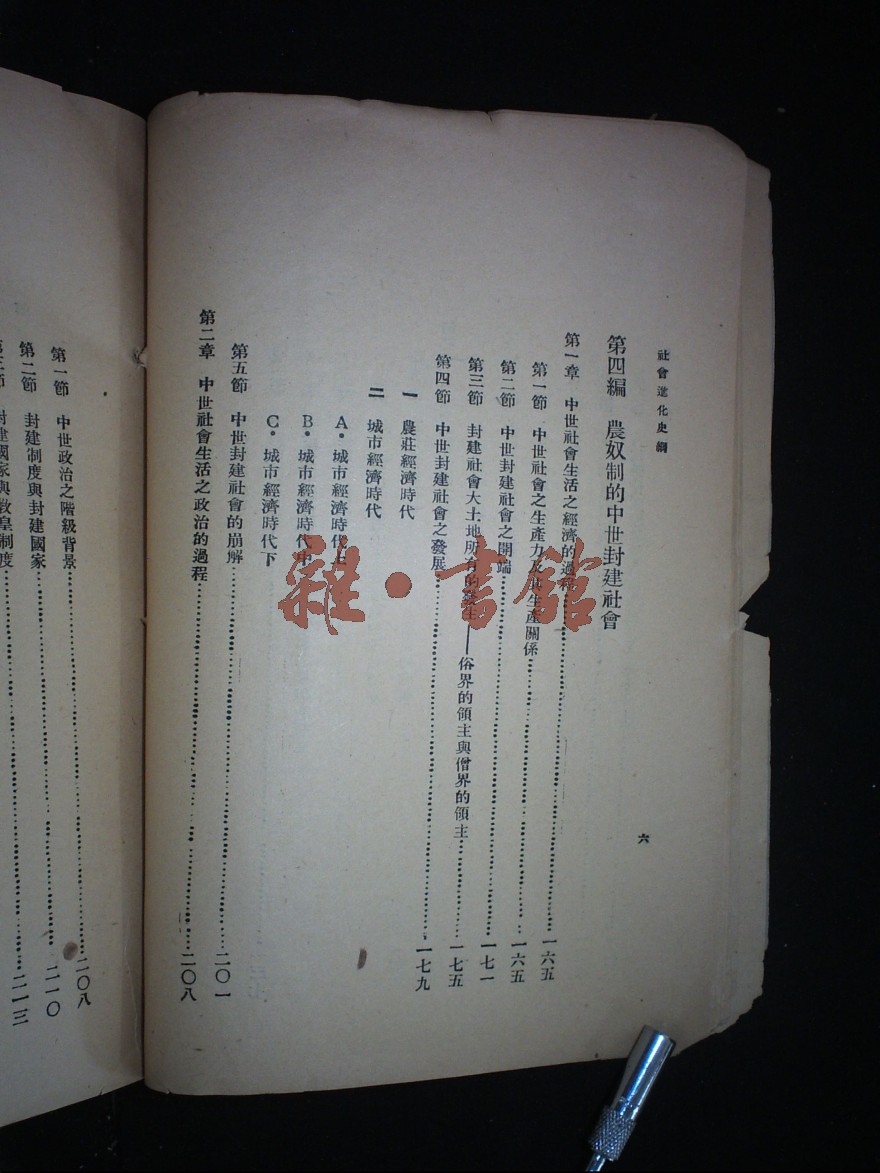 社會進化史綱
六
第四編　農奴制的中世封建社會
第一章　中世社會生活之經濟的過程……一六五
第一節　中世社會之生產力及其生產關係……一六五
第二節　中世封建社會之開端……一七一
第三節　封建社會大土地所有的發生——俗界的領主與僧界的領主……一七五
第四節　中世封建社會之發展……一七九
一　農莊經濟時代
二　城市經濟時代
A・城市經濟時代上
B・城市經濟時代中
C・城市經濟時代下
第五節　中世封建社會的崩解……二〇一
第二章　中世社會生活之政治的過程……二〇八
第一節　中世政治之階級背景……二〇八
第二節　封建制度與封建國家……二一〇
封建國家與教皇制度……二一三
雜・書館